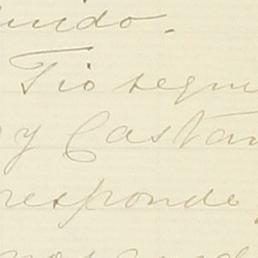 uido.
Tio segu
y Castañ
responde